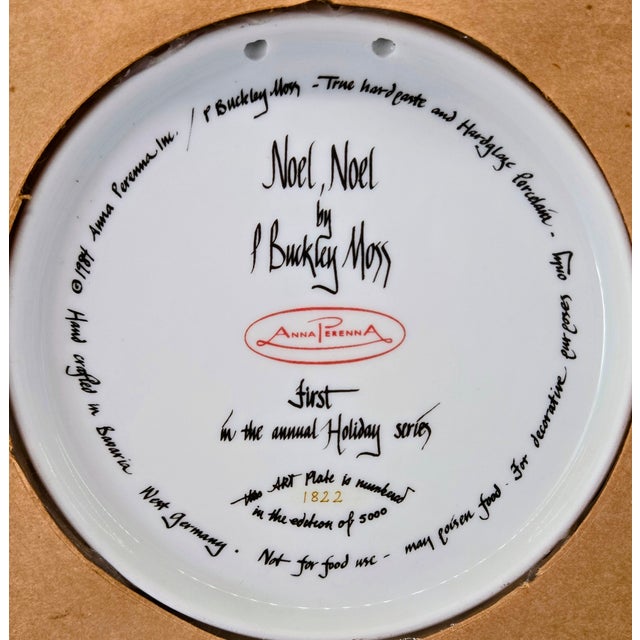 Noel, Noel
by
P Buckley Moss
ANNA PERENNA
First
in the annual Holiday series
this ART Plate is numbered
1822
in the edition of 5000
©1984 Anna Perenna Inc. / P Buckley Moss - True hardpaste and Hardglaze Porcelain - For decorative purposes only
Hand crafted in Bavaria West Germany. Not for food use - may poison food.